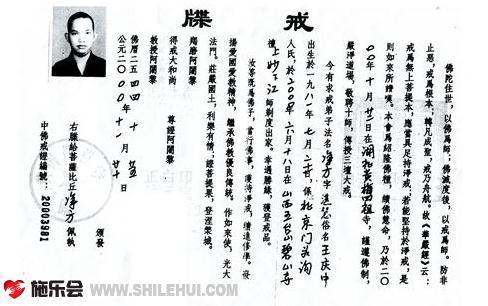 戒牒
佛陀住世，以佛為師；佛滅度後，以戒為師。防非
止惡，戒為根本，轉凡成聖，戒乃舟航。故《華嚴經》云：
戒為無上菩提本，應當具足持淨戒；若能堅持於淨戒，是
則如來所讚嘆。本會為紹隆佛種，續佛慧命，乃於二〇
〇〇年十月廿二日在湖北黃梅四祖寺，謹遵佛制，
嚴淨道場，敬聘十師，傳授三壇大戒。
今有求戒弟子法名淨方字道 俗名王慶中
出生於一九八一年七月二 ，係北京門頭溝
人氏，於二00 年六月十八日在山西五台山碧山寺
禮上妙下江師剃度出家。幸遇勝緣，獲登戒品。
汝等既為佛子，當行佛事，護持淨戒，續道修學。發
揚愛國愛教精神，繼承佛教優良傳統。作如來使，光大
法門。莊嚴國土，利樂有情，證菩提果，登涅槃城。
得戒大和尚
羯磨阿闍黎 尊證阿闍黎
教授阿闍黎
佛曆二五四四年十月廿五日
公元二〇〇〇年十一月二十日 頒發
右牒給菩薩比丘淨方佩執
中佛戒證編號：20003981
施乐会
WWW.SHILEHUI.COM